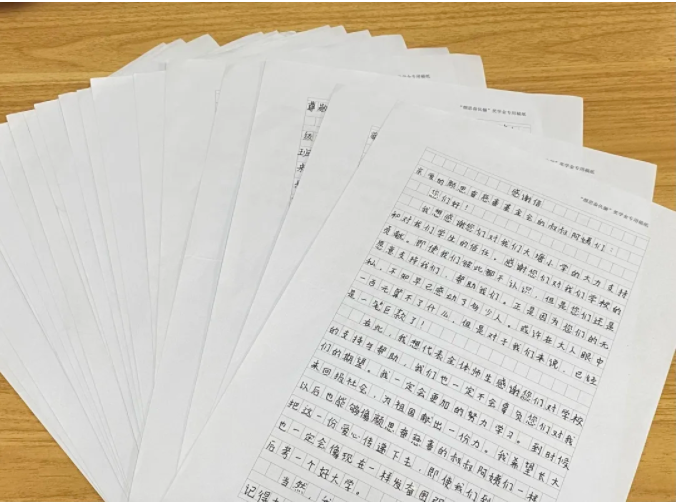 感谢信
亲爱的顾思意慈善基金会的叔叔阿姨们：
您们好！
我想感谢您们对我们大塘小学的大力支持
和对我们学生的信任。感谢您们对我们学校的
贡献。即使我们彼此都不认识，但是您们还是
愿意支持我们，帮助我们。正是因为您们的无
私，不知早已感动了多少人。或许在大人眼中
一百元算不了什么，但是对于我们来说，已经
是一笔巨款了！
在此，我想代表全体师生感谢您们对学校
的支持与帮助，我们也一定不会辜负您们对我
们的期望。我一定会更加的努力学习。到时候
来回报社会，为祖国献出一份力。我希望长大
以后也能够像顾思意慈善的叔叔阿姨们一样
把这一份爱心传递下去，即使我们
也一定会像现在一样发奋图
后考一个好大学。
当然，
记得